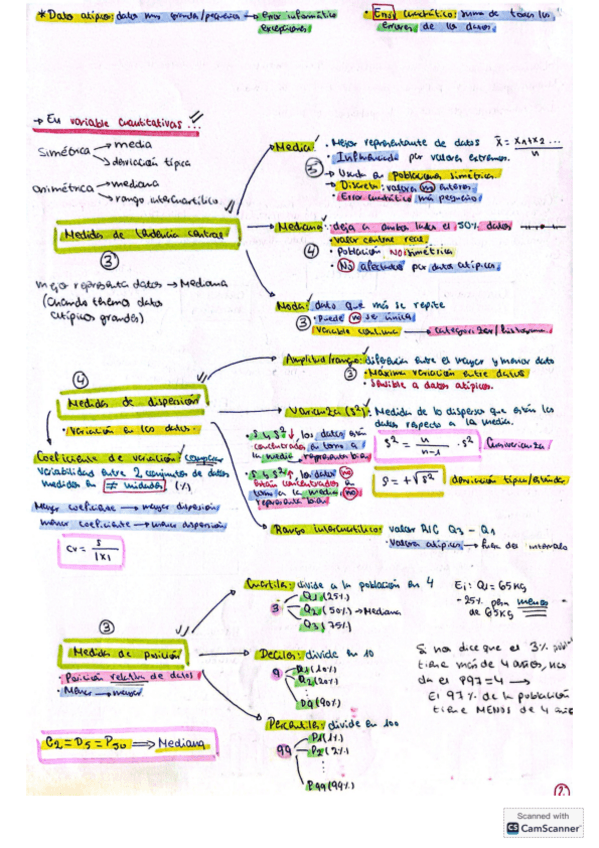 * Datos atípicos: datos muy grandes/pequeños → error informático
excepciones
• Error cuadrático: suma de todos los
errores de los datos.
→ En variable cuantitativas...
Simétrica → media
→ desviación típica
asimétrica → mediana
→ rango intercuartílico
Medidas de tendencia central
3
mejor representa datos → Mediana
(Cuando tenemos datos
atípicos grandes)
Media:
5
• Mejor representante de datos x̄ = x1+x2 ... / n
• Influenciada por valores extremos.
→ Usada en poblaciones simétricas.
→ Discreta: valores no enteros.
• Error cuadrático más pequeño.
Mediana: deja a ambos lados el 50% datos
4
• valor central real.
• Población NO simétrica
• No afectados por datos atípicos.
Moda: dato que más se repite
3
• Puede no ser única.
Variable continua → categorizar/histograma.
4
Medidas de dispersión
• Variación en los datos.
Amplitud/rango: diferencia entre el mayor y menor dato
3
• Máxima variación entre datos
• Sensible a datos atípicos.
Varianza (S²): Medida de lo dispersos que están los
datos respecto a la media.
• S y S² ↓ los datos están
concentrados en torno a
la media, representa bien
• S y S² ↑ los datos no
están concentrados en
torno a la media, no
representa bien
S² = n / n-1 · S² Cuasivarianza
S = +√S² desviación típica/estándar
Coeficiente de variación: comparar
variabilidad entre 2 conjuntos de datos
medidos en ≠ unidades. (%)
Mayor coeficiente → mayor dispersión
menor coeficiente → menor dispersión
CV = S / |x̄|
Rango intercuartílico: valor RIC Q3 - Q1
• Valores atípicos → fuera del intervalo
3
Medidas de posición
• Posición relativa de datos
• Menor → mayor
C2 = D5 = P50 ⟹ Mediana
Cuartiles: divide a la población en 4
3
Q1 (25%)
Q2 (50%) → Mediana
Q3 (75%)
Ej: Q1 = 65kg
- 25% pesa menos
de 65kg
Deciles: divide en 10
9
D1 (10%)
D2 (20%)
⋮
D9 (90%)
Percentiles: divide en 100
99
P1 (1%)
P2 (2%)
⋮
P99 (99%)
Si nos dice que el 3% pobl
tiene más de 4 años, nos
da el P97 = 4 →
El 97% de la población
tiene MENOS de 4 año
2
Scanned with
CS CamScanner